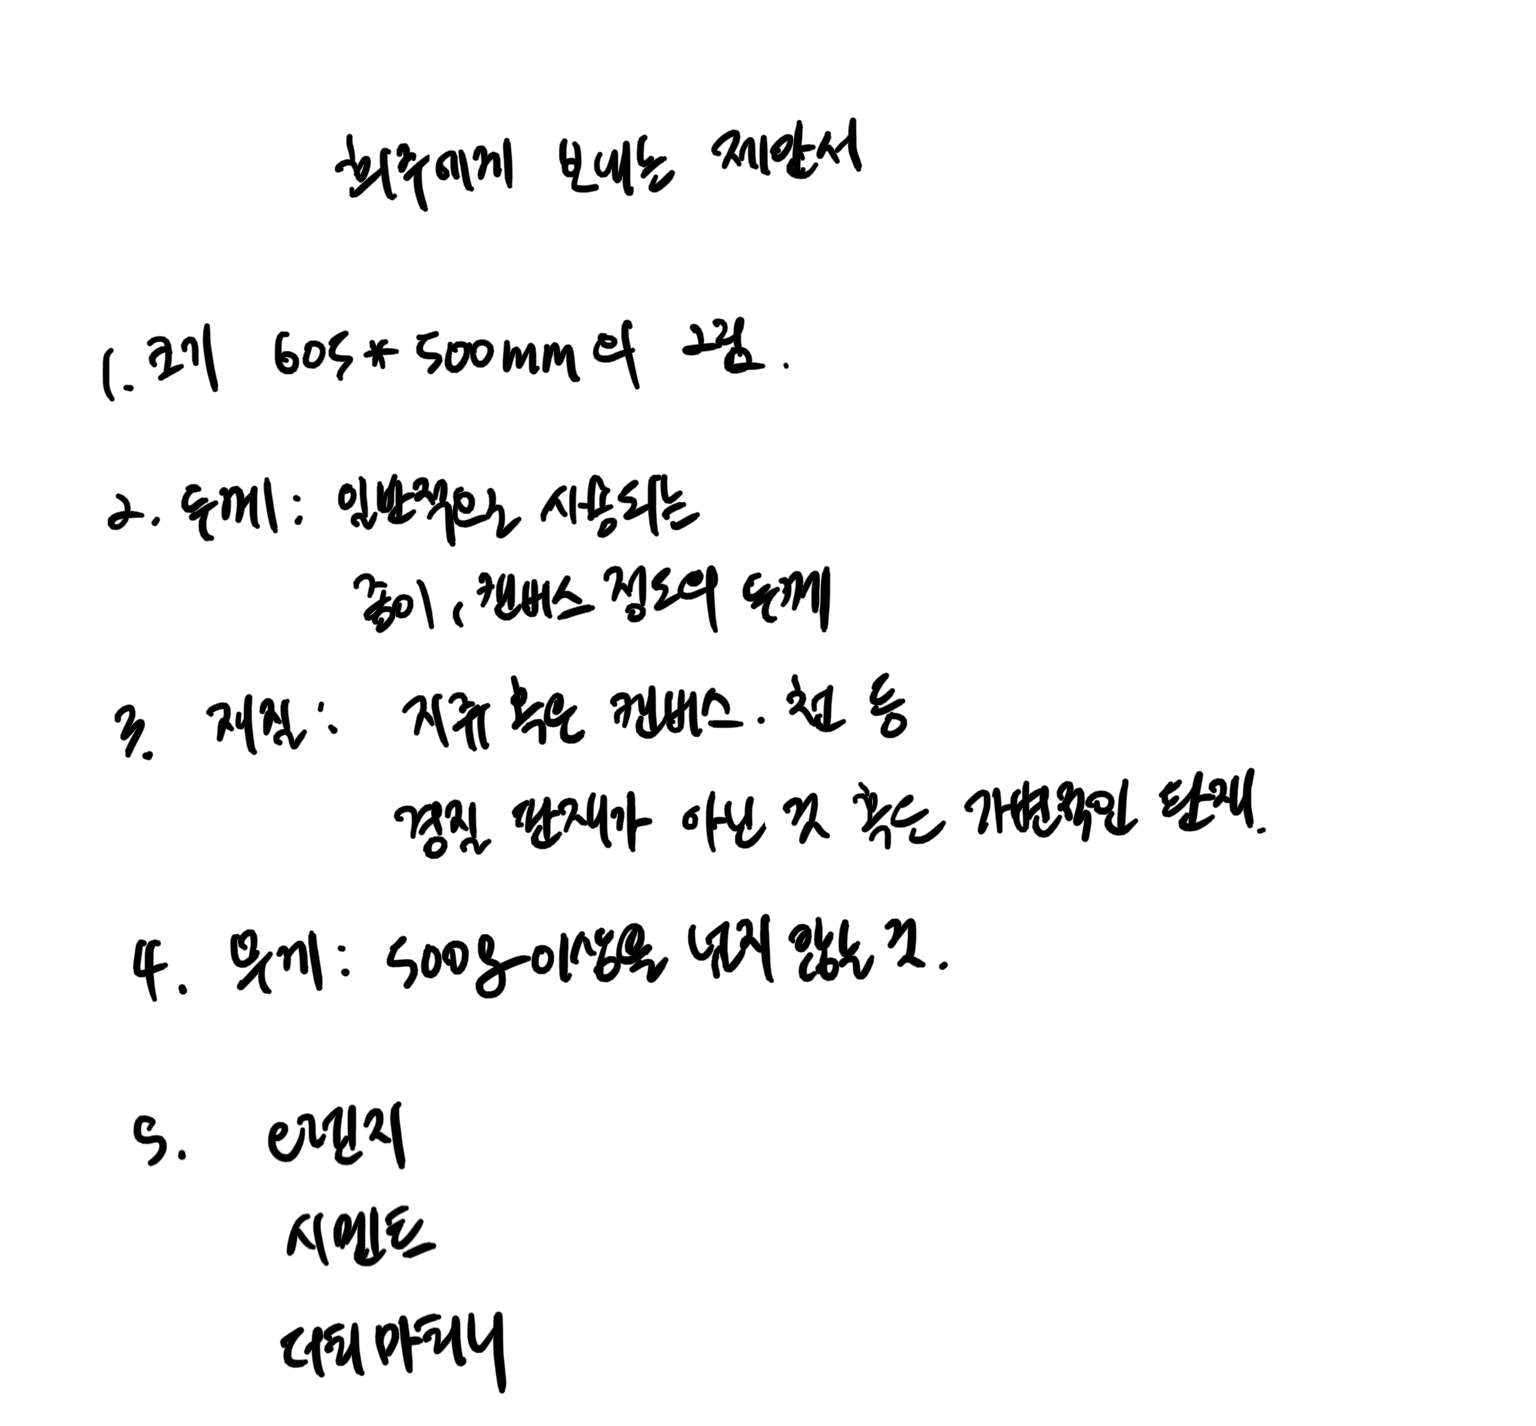 희주에게 보내는 제안서
1. 크기 605*500mm의 그림.
2. 두께: 일반적으로 사용되는
종이, 캔버스 정도의 두께
3. 재질: 지류 혹은 캔버스. 천 등
경질 판재가 아닌 것 혹는 가변적인 단재.
4. 무게: 500g이상을 넘지 않는 것.
5.
시멘트
더티 마티니